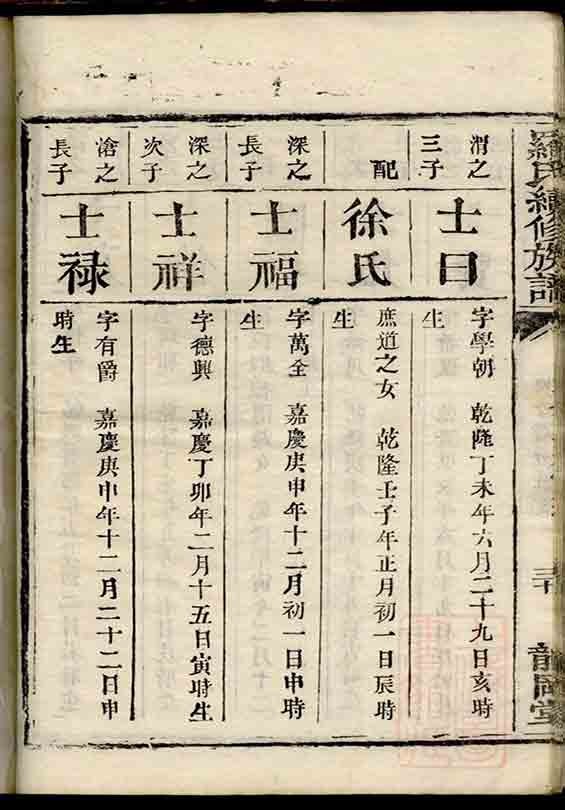 羅氏續修族譜
三十
龍岡堂
渭之
三子
士曰
字學朝 乾隆丁未年六月二十九日亥時
生
配
徐氏
庶道之女 乾隆壬子年正月初一日辰時
生
深之
長子
士福
字萬全 嘉慶庚申年十二月初一日申時
生
深之
次子
士祥
字德興 嘉慶丁卯年二月十五日寅時生
滄之
長子
士禄
字有爵 嘉慶庚申年十二月二十二日申
時生